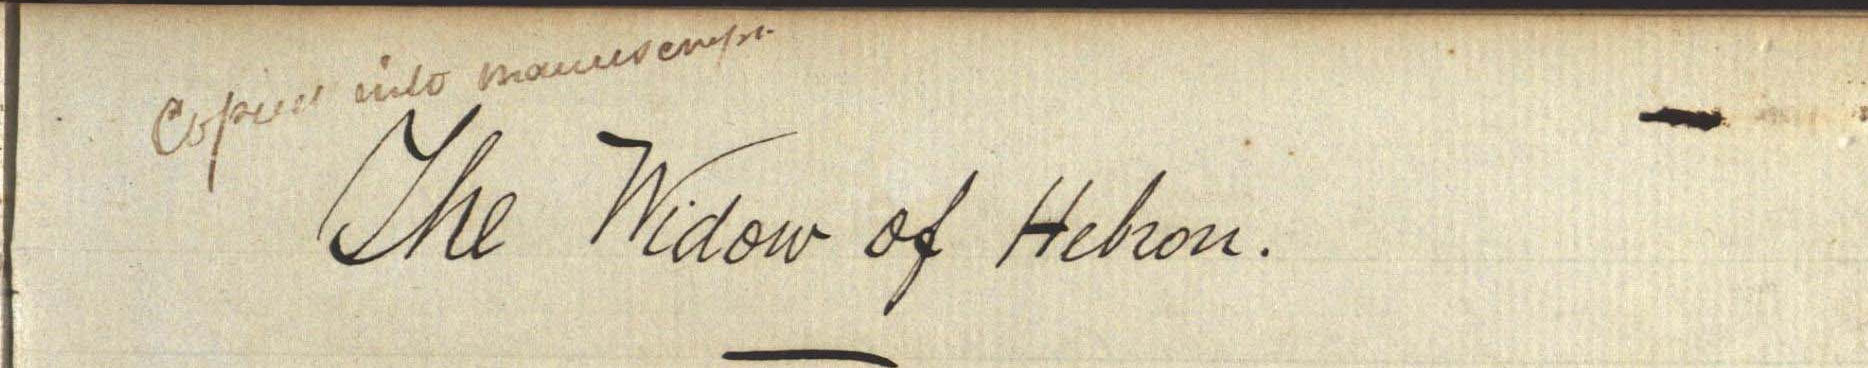 Copied into manuscript.
The Widow of Hebron.